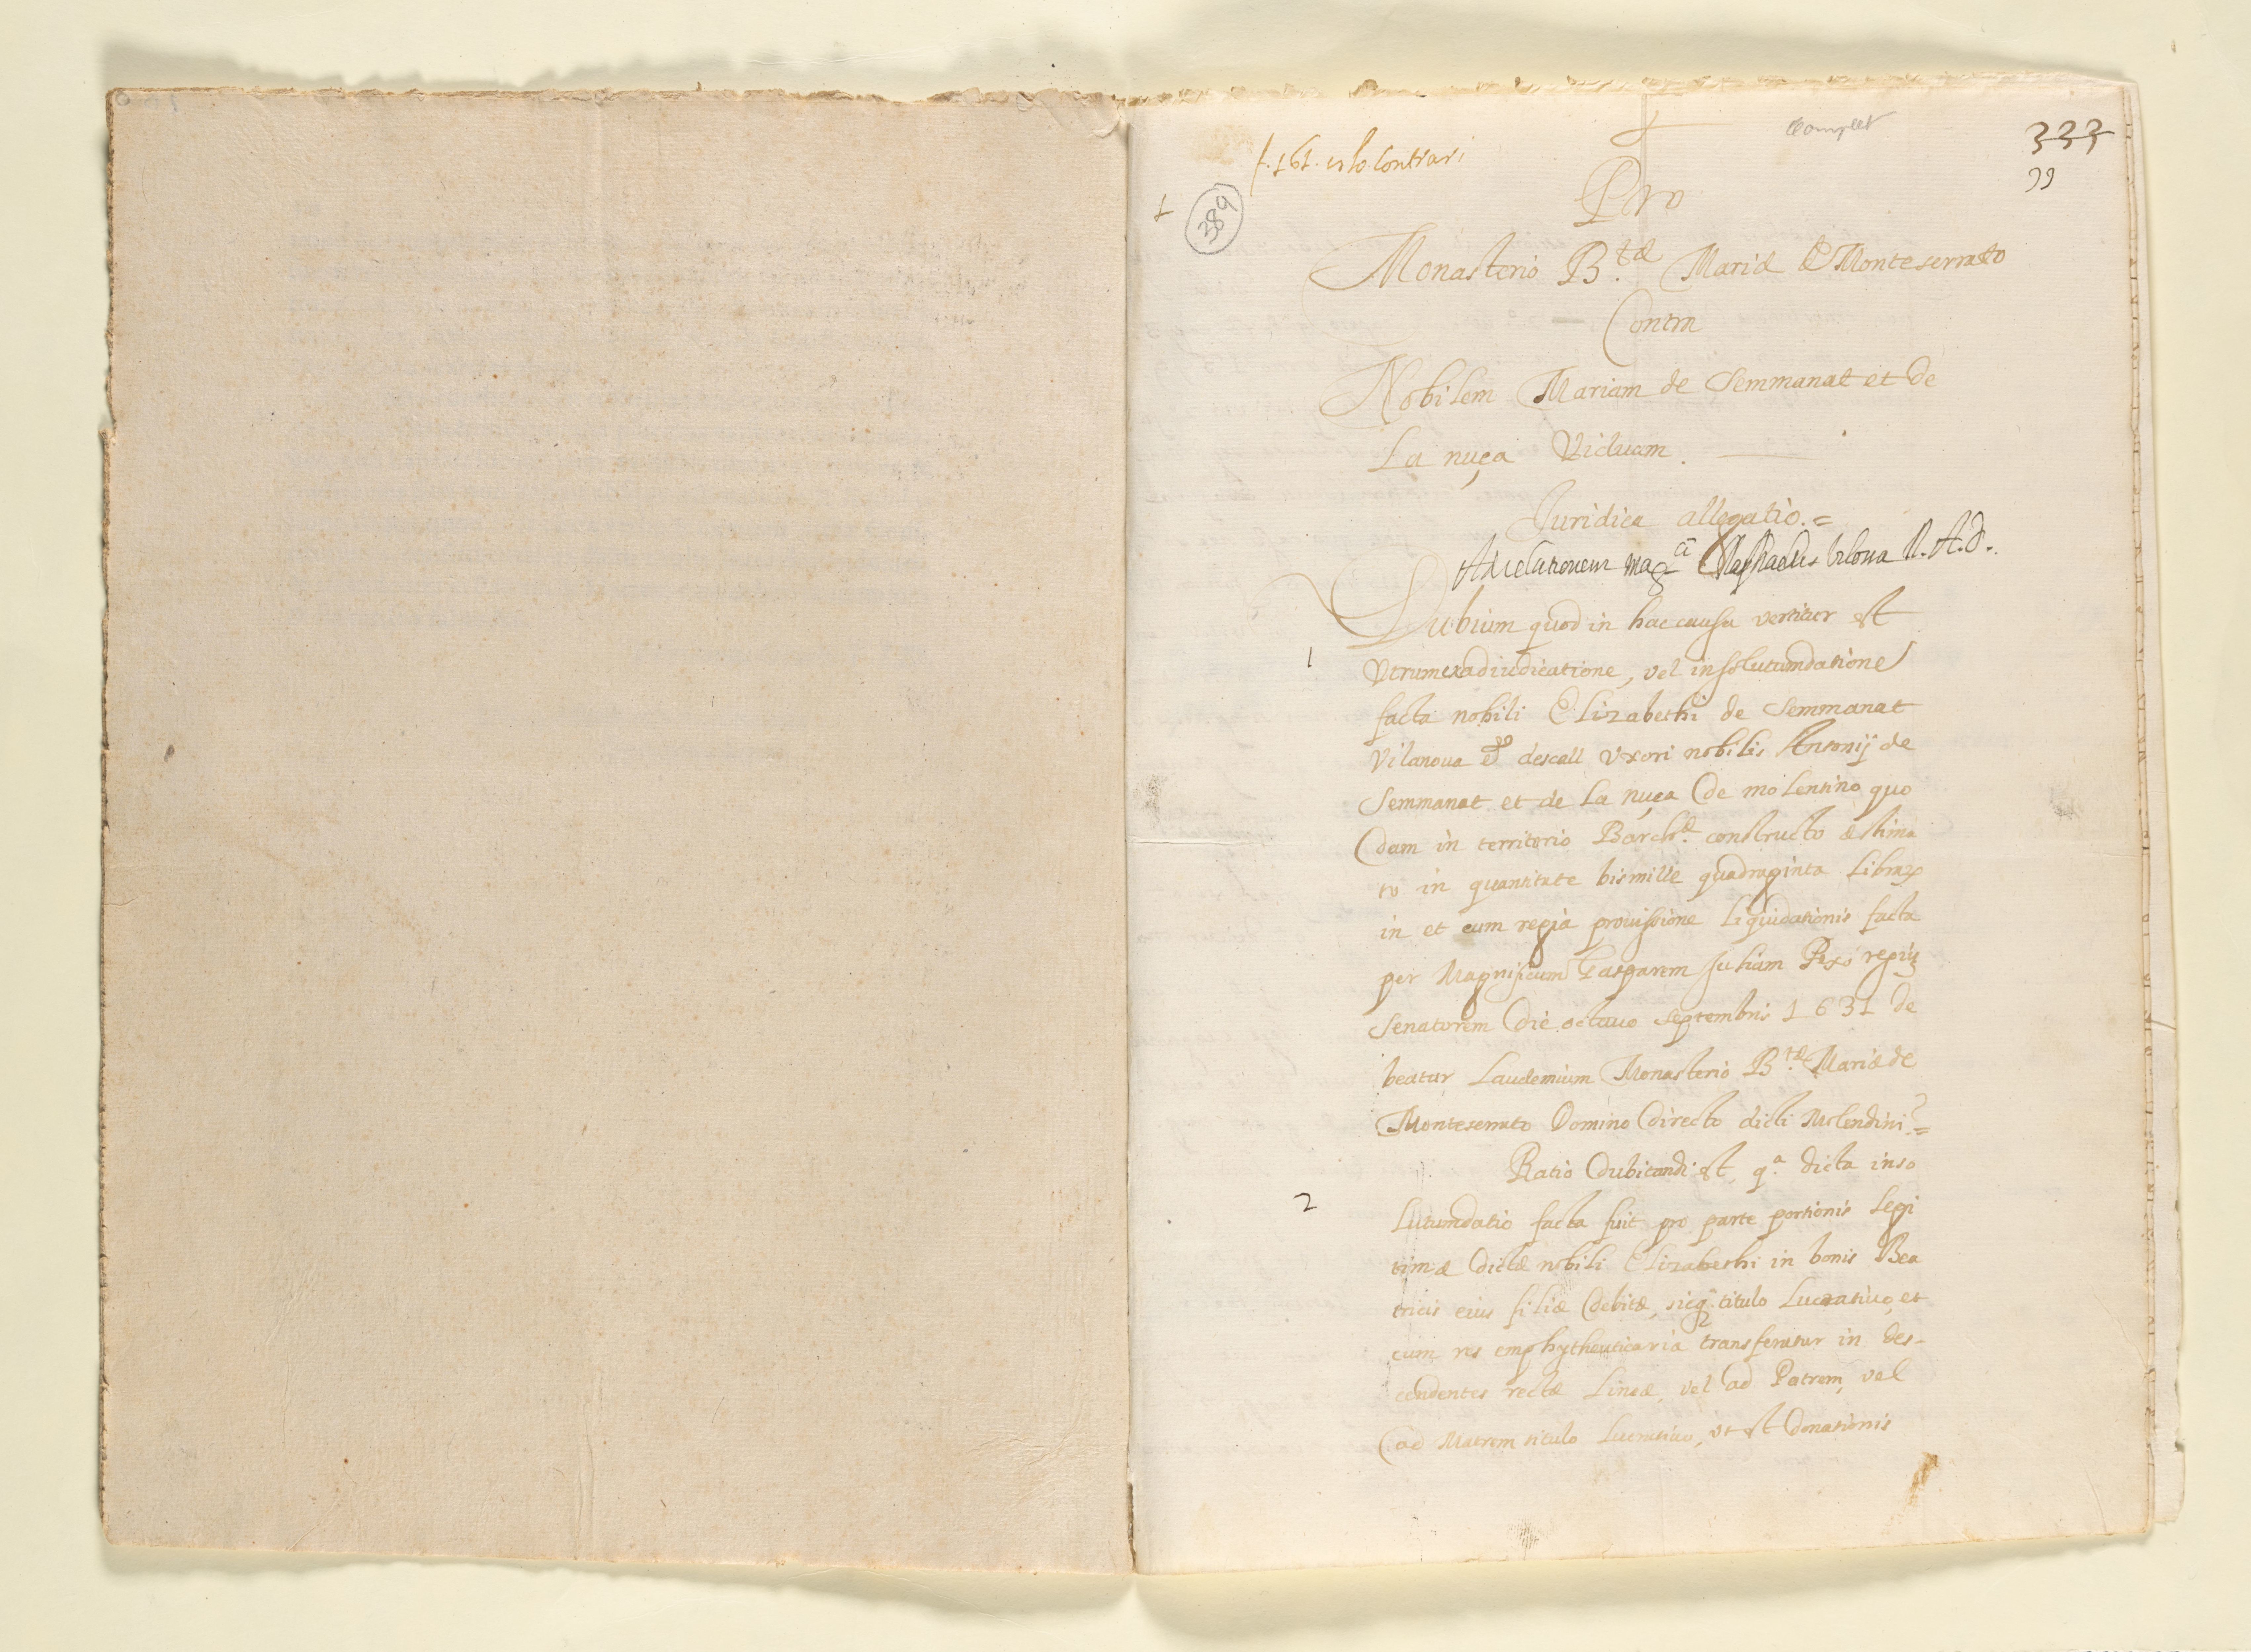 complet
333
99
f. 161. es lo contrari
1
389
Pro
Monasterio B.tæ Mariæ de Monteserrato
Contra
Nobilem Mariam de Semmanat et de
La nuça Viduam.
Juridica allegatio.=
Ad relationem mag.ci Raphaelis Vilosa R. A. d.
Dubium quod in hac causa vertitur est
1
Vtrum ex adiudicatione, vel insolutumdatione
facta nobili Elizabethi de Semmanat
Vilanoua et descall Vxori nobilis Antonij de
Semmanat et de La nuça de molentino quo
dam in territorio Barch.æ constructo æstima
to in quantitate bismille quadraginta Librar
in et cum regia prouissione liquidationis facta
per Magnificum Gasparem Julium regiũ
Senatorem die octauo septembris 1631 de
beatur Laudemium Monasterio B.tæ Mariæ de
Monteserrato Domino directo dicti Molendini?=
Ratio dubitandi est, q.a dicta inso
2
lutumdatio facta fuit pro parte portionis Legi
timæ dictæ nobili Elizabethi in bonis Bea
tricis eius filiæ debitæ, sicq. titulo Lucratiuo, et
cum res emphytheuticaria transferatur in des-
cendentes rectæ Lineæ, vel ad Patrem, vel
ad Matrem titulo Lucratiuo, vt est donationis